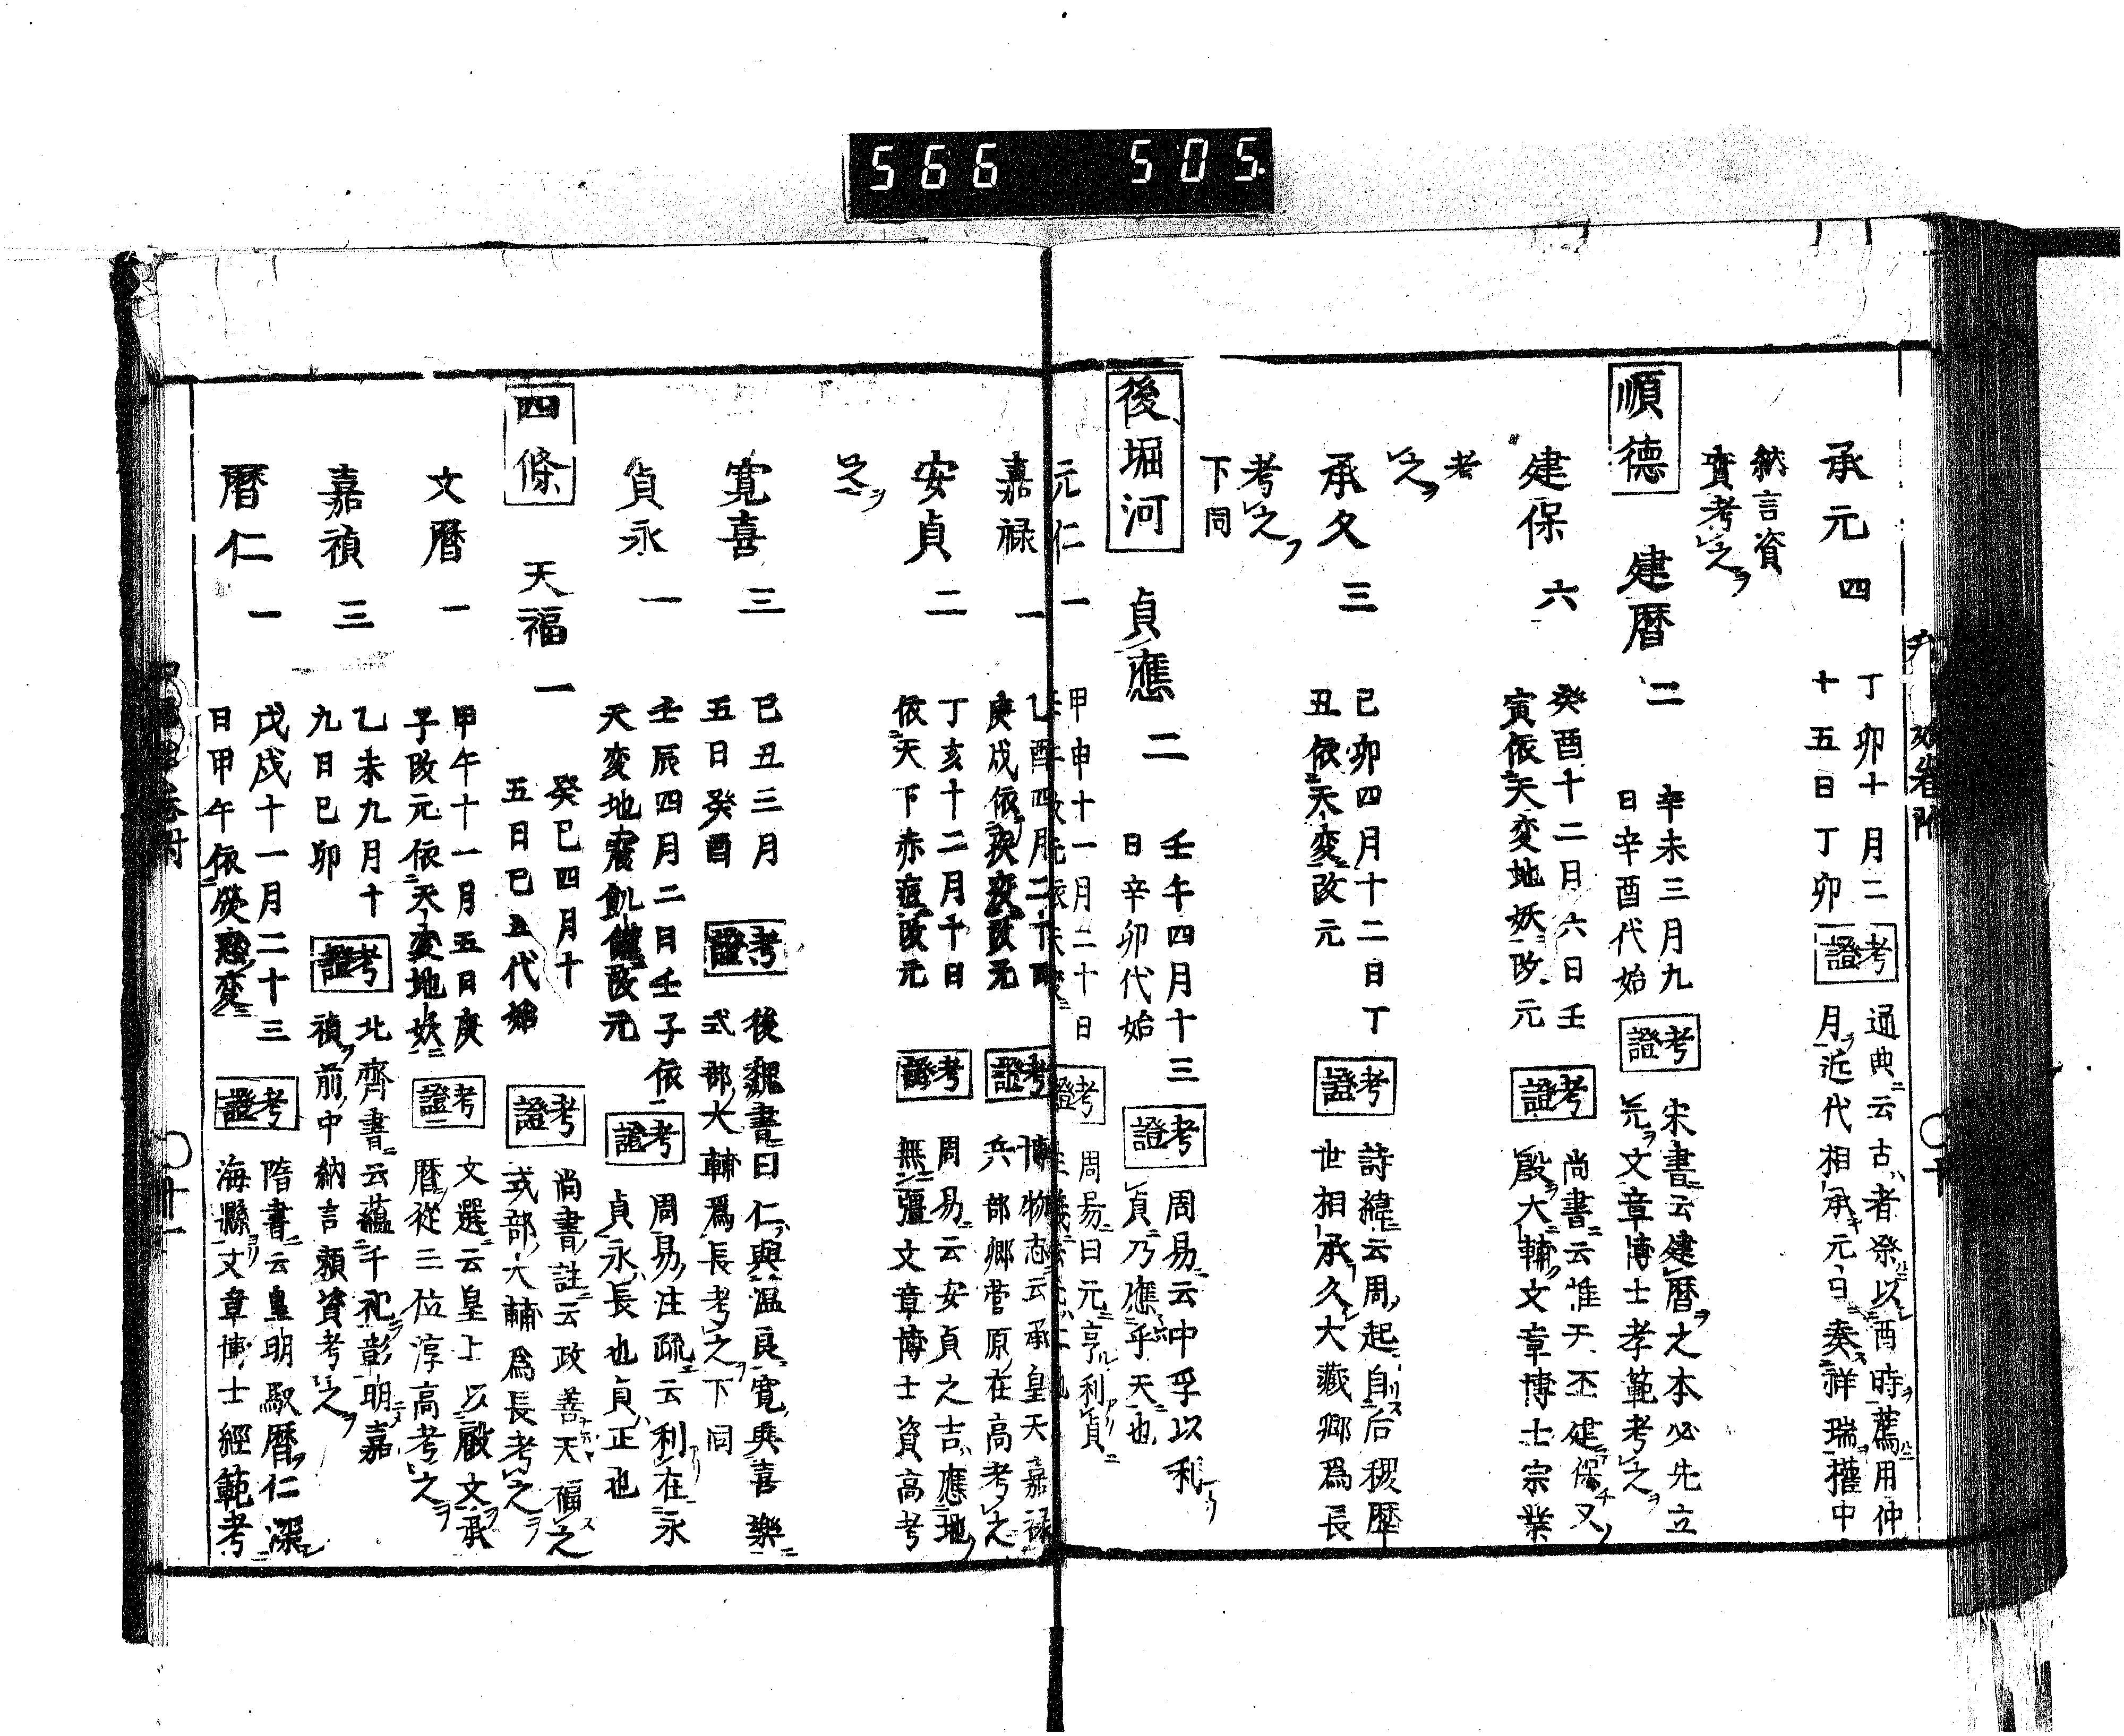 566 505.
承元 四
丁卯十月二
十五日丁卯
考證
通典云古者祭以酉時薦用仲
月近代相承元日奏祥瑞權中
納言資
實考之
順德 建暦 二
辛未三月九
日辛酉代始
考證
宋書云建暦之本必先立
元文章博士孝範考之
建保 六
癸酉十二月六日壬
寅依天変地妖改元
考證
尚書云惟天丕建保乂
殷大輔文章博士宗業
考
之
承久 三
己卯四月十二日丁
丑依天変改元
考證
詩緯云周起自后稷歴
世相承久大藏卿爲長
考之
下同
後堀河 貞應 二
壬午四月十三
日辛卯代始
考證
周易云中孚以利
貞乃應乎天也
元仁 一
甲申十一月二十日
考證
周易曰元亨利貞
嘉禄 一
乙酉四月二十
庚戌依疫改元
考證
博物志云承皇天嘉禄
兵部卿菅原在高考之
安貞 二
丁亥十二月十日
依天下赤痘改元
考證
周易云安貞之吉應地
無疆文章博士資高考
之
寛喜 三
己丑三月
五日癸酉
考證
後魏書曰仁與温良寛與喜樂
式部大輔爲長考之下同
貞永 一
壬辰四月二日壬子依
天変地震飢饉改元
考證
周易注疏云利在永
貞永長也貞正也
四條 天福 一
癸巳四月十
五日己丑代始
考證
尚書註云政善天福之
式部大輔爲長考之
文暦 一
甲午十一月五日庚
子改元依天変地妖
考證
文選云皇上以叡文承
暦從二位淳高考之
嘉禎 三
乙未九月十
九日己卯
考證
北齊書云蘊千祀彰明嘉
禎前中納言頼資考之
暦仁 一
戊戌十一月二十三
日甲午依熒惑変
考證
隋書云皇明馭暦仁深
海縣文章博士經範考